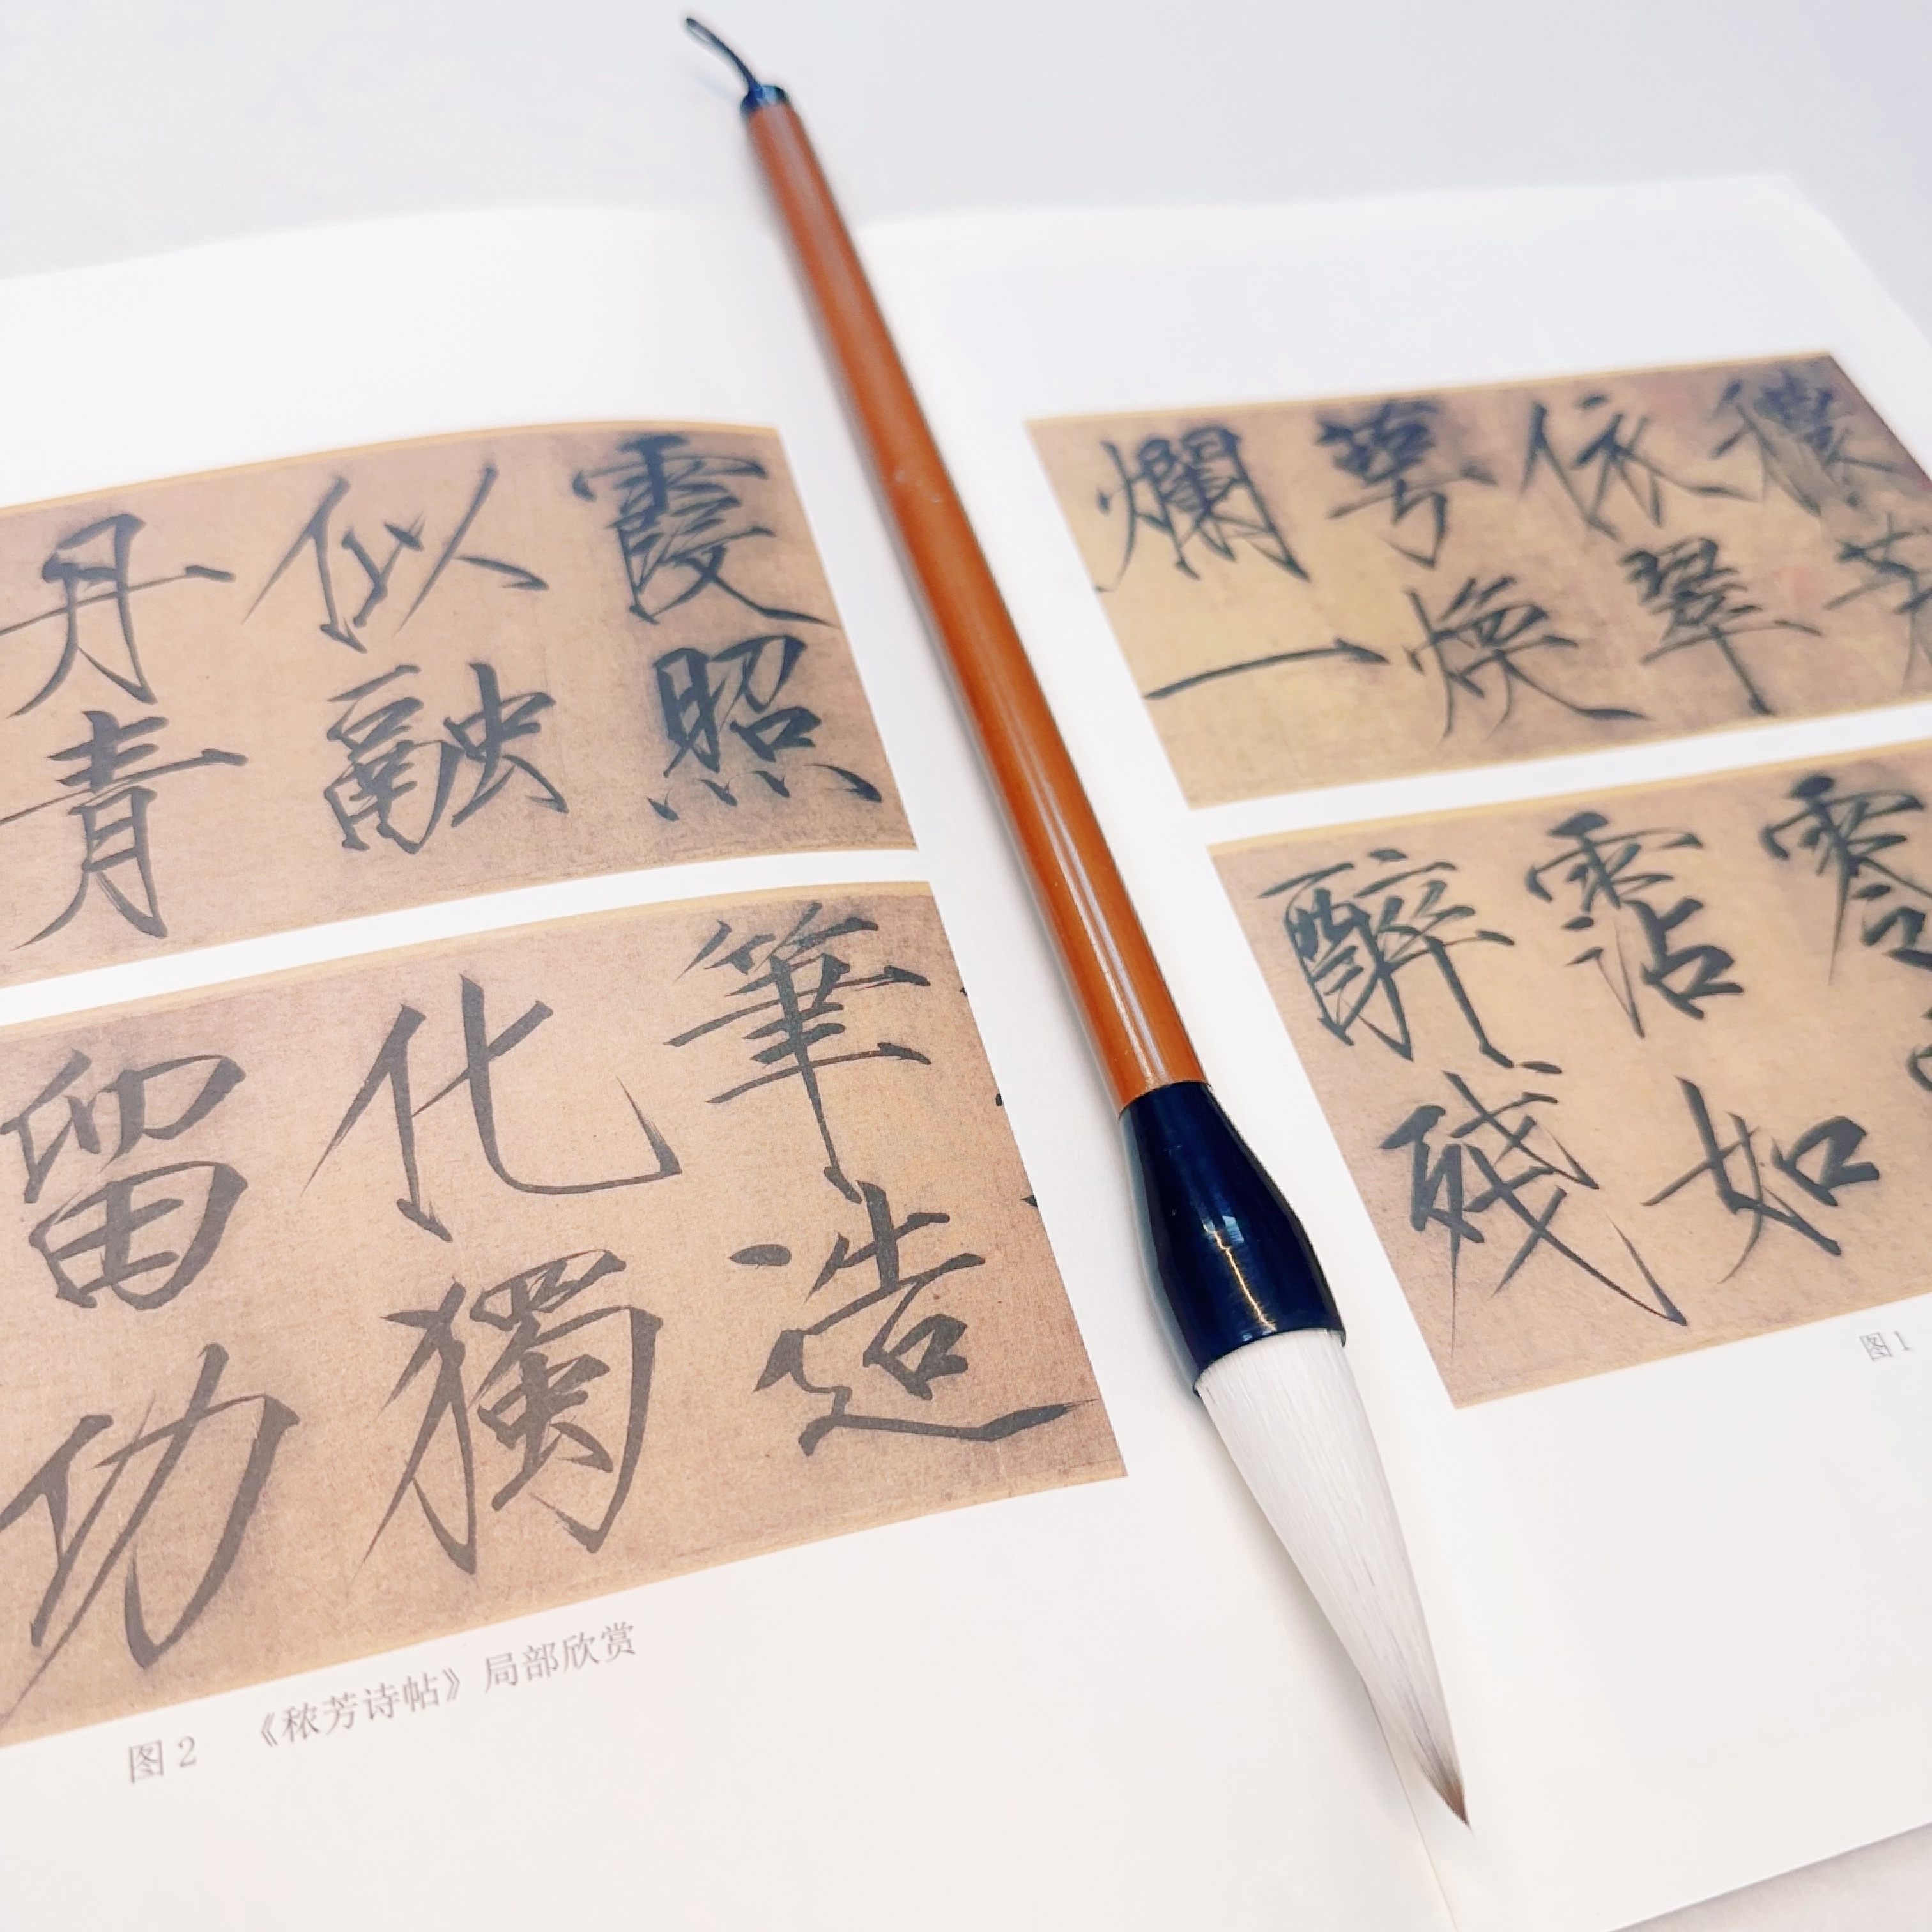 穠芳
依翠
萼煥
爛一
零
霑如
醉殘
图1
霞照
似融
丹青
筆造
化獨
留功
图 2 《秾芳诗帖》局部欣赏